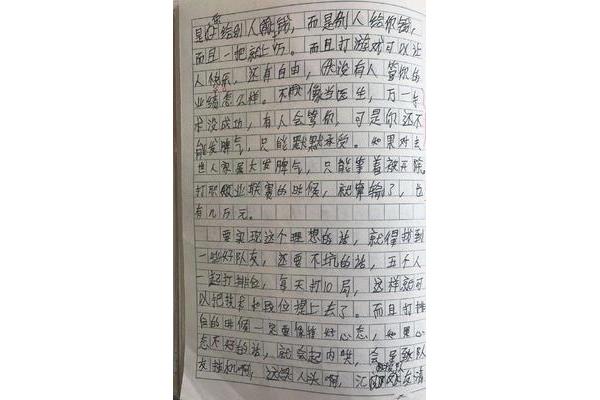 是你给别人钱，而是别人给你钱，
而且一把就上万。而且打游戏可以让
人快乐，还有自由，没有人管你的
业绩怎么样。不像当医生，万一手
术没成功，有人会管你，可是你还不
能发脾气，只能默默承受。如果对患
者人家发大发脾气，只能等着被开除。
打职业联赛的时候，就算输了，也
有几万元。
要实现这个理想的话，就得找到
一些好队友，还要不坑的话，五个人
一起打排位，每天打10局，这样就可
以把技术和段位提上去了。而且打排
位的时候一定要保持好心态，如果心
态不好的话，就会起内哄，会导致队
友挂机啊，送人头啊，